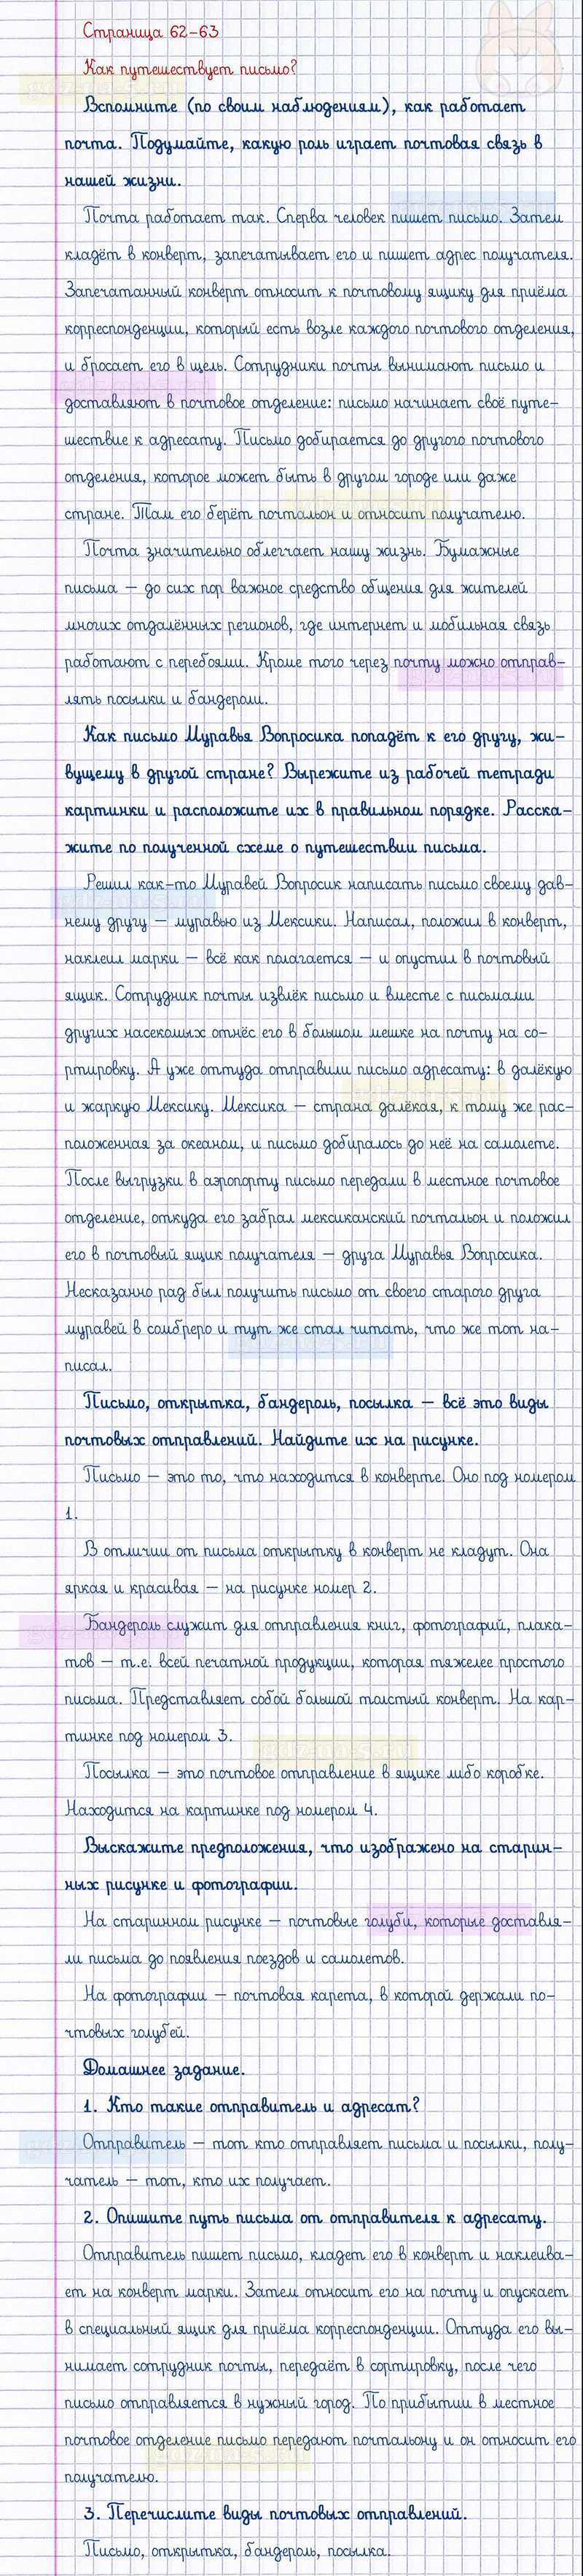 Страница 62-63
Как путешествует письмо?
Вспомните (по своим наблюдениям), как работает
почта. Подумайте, какую роль играет почтовая связь в
нашей жизни.
Почта работает так. Сперва человек пишет письмо. Затем
кладёт в конверт, запечатывает его и пишет адрес получателя.
Запечатанный конверт относит к почтовому ящику для приёма
корреспонденции, который есть возле каждого почтового отделения,
и бросает его в щель. Сотрудники почты вынимают письмо и
доставляют в почтовое отделение: письмо начинает своё путе-
шествие к адресату. Письмо добирается до другого почтового
отделения, которое может быть в другом городе или даже
стране. Там его берёт почтальон и относит получателю.
Почта значительно облегчает нашу жизнь. Бумажные
письма – до сих пор важное средство общения для жителей
многих отдалённых регионов, где интернет и мобильная связь
работают с перебоями. Кроме того через почту можно отправ-
лять посылки и бандероли.
Как письмо Муравья Вопросика попадёт к его другу, жи-
вущему в другой стране? Вырежите из рабочей тетради
картинки и расположите их в правильном порядке. Расска-
жите по полученной схеме о путешествии письма.
Решил как-то Муравей Вопросик написать письмо своему дав-
нему другу – муравью из Мексики. Написал, положил в конверт,
наклеил марки – всё как полагается – и опустил в почтовый
ящик. Сотрудник почты извлёк письмо и вместе с письмами
других насекомых отнёс его в большом мешке на почту на со-
ртировку. А уже оттуда отправили письмо адресату: в далёкую
и жаркую Мексику. Мексика – страна далёкая, к тому же рас-
положенная за океаном, и письмо добиралось до неё на самолете.
После выгрузки в аэропорту письмо передали в местное почтовое
отделение, откуда его забрал мексиканский почтальон и положил
его в почтовый ящик получателя – друга Муравья Вопросика.
Несказанно рад был получить письмо от своего старого друга
муравей в сомбреро и тут же стал читать, что же тот на-
писал.
Письмо, открытка, бандероль, посылка – всё это виды
почтовых отправлений. Найдите их на рисунке.
Письмо – это то, что находится в конверте. Оно под номером
1.
В отличии от письма открытку в конверт не кладут. Она
яркая и красивая – на рисунке номер 2.
Бандероль служит для отправления книг, фотографий, плака-
тов – т.е. всей печатной продукции, которая тяжелее простого
письма. Представляет собой большой толстый конверт. На кар-
тинке под номером 3.
Посылка – это почтовое отправление в ящике либо коробке.
Находится на картинке под номером 4.
Выскажите предположения, что изображено на старин-
ных рисунке и фотографии.
На старинном рисунке – почтовые голуби, которые доставля-
ли письма до появления поездов и самолетов.
На фотографии – почтовая карета, в которой держали по-
чтовых голубей.
Домашнее задание.
1. Кто такие отправитель и адресат?
Отправитель – тот кто отправляет письма и посылки, полу-
чатель – тот, кто их получает.
2. Опишите путь письма от отправителя к адресату.
Отправитель пишет письмо, кладет его в конверт и наклеива-
ет на конверт марки. Затем относит его на почту и опускает
в специальный ящик для приёма корреспонденции. Оттуда его вы-
нимает сотрудник почты, передаёт в сортировку, после чего
письмо отправляется в нужный город. По прибытии в местное
почтовое отделение письмо передают почтальону и он относит его
получателю.
3. Перечислите виды почтовых отправлений.
Письмо, открытка, бандероль, посылка.